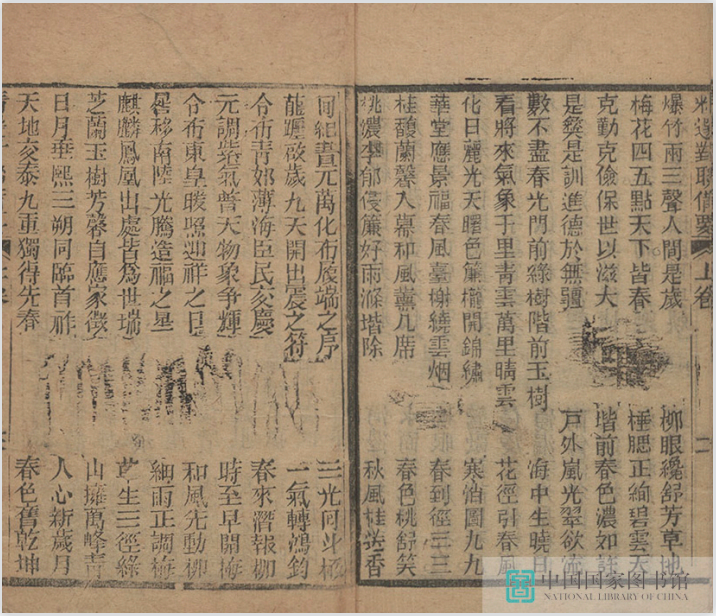 選對聯備要 上卷 二
爆竹兩三聲人間是歲
梅花四五點天下皆春
克勤克儉保世以滋大
是彝是訓進德於無疆
數不盡春光門前綠樹階前玉樹
看將來氣象千里青雲萬里晴雲
化日麗光天曙色簾櫳開錦繡
華堂應景福春風臺榭繞雲烟
桂馥蘭馨入幕和風薰几席
桃濃李郁侵簾好雨滌堦除
柳眼纔舒芳草地
腮正絢碧雲天
堦前春色濃如許
戶外嵐光翠欲流
海中生曉日
花徑引春風
寒消圖九九
春到徑三三
春色桃舒笑
秋風桂送香
紀書元萬化布履端之序
龍躔歲九天開出震之符
令布青郊薄海臣民交慶
元調紫氣普天物象爭輝
令布東皇暖照迎祥之日
晷移南陸光騰造福之星
麒麟鳳凰出處皆為世瑞
芝蘭玉樹芳馨自應家徵
日月垂熙三朔同臨首祚
天地交泰九重獨得先春
三光同斗極
一氣轉鴻鈞
春來潛報柳
時至早開梅
和風先動柳
細雨正調梅
草生三徑綠
山擁萬峰青
人心新歲月
春色舊乾坤
中国国家图书馆
NATIONAL LIBRARY OF CHINA